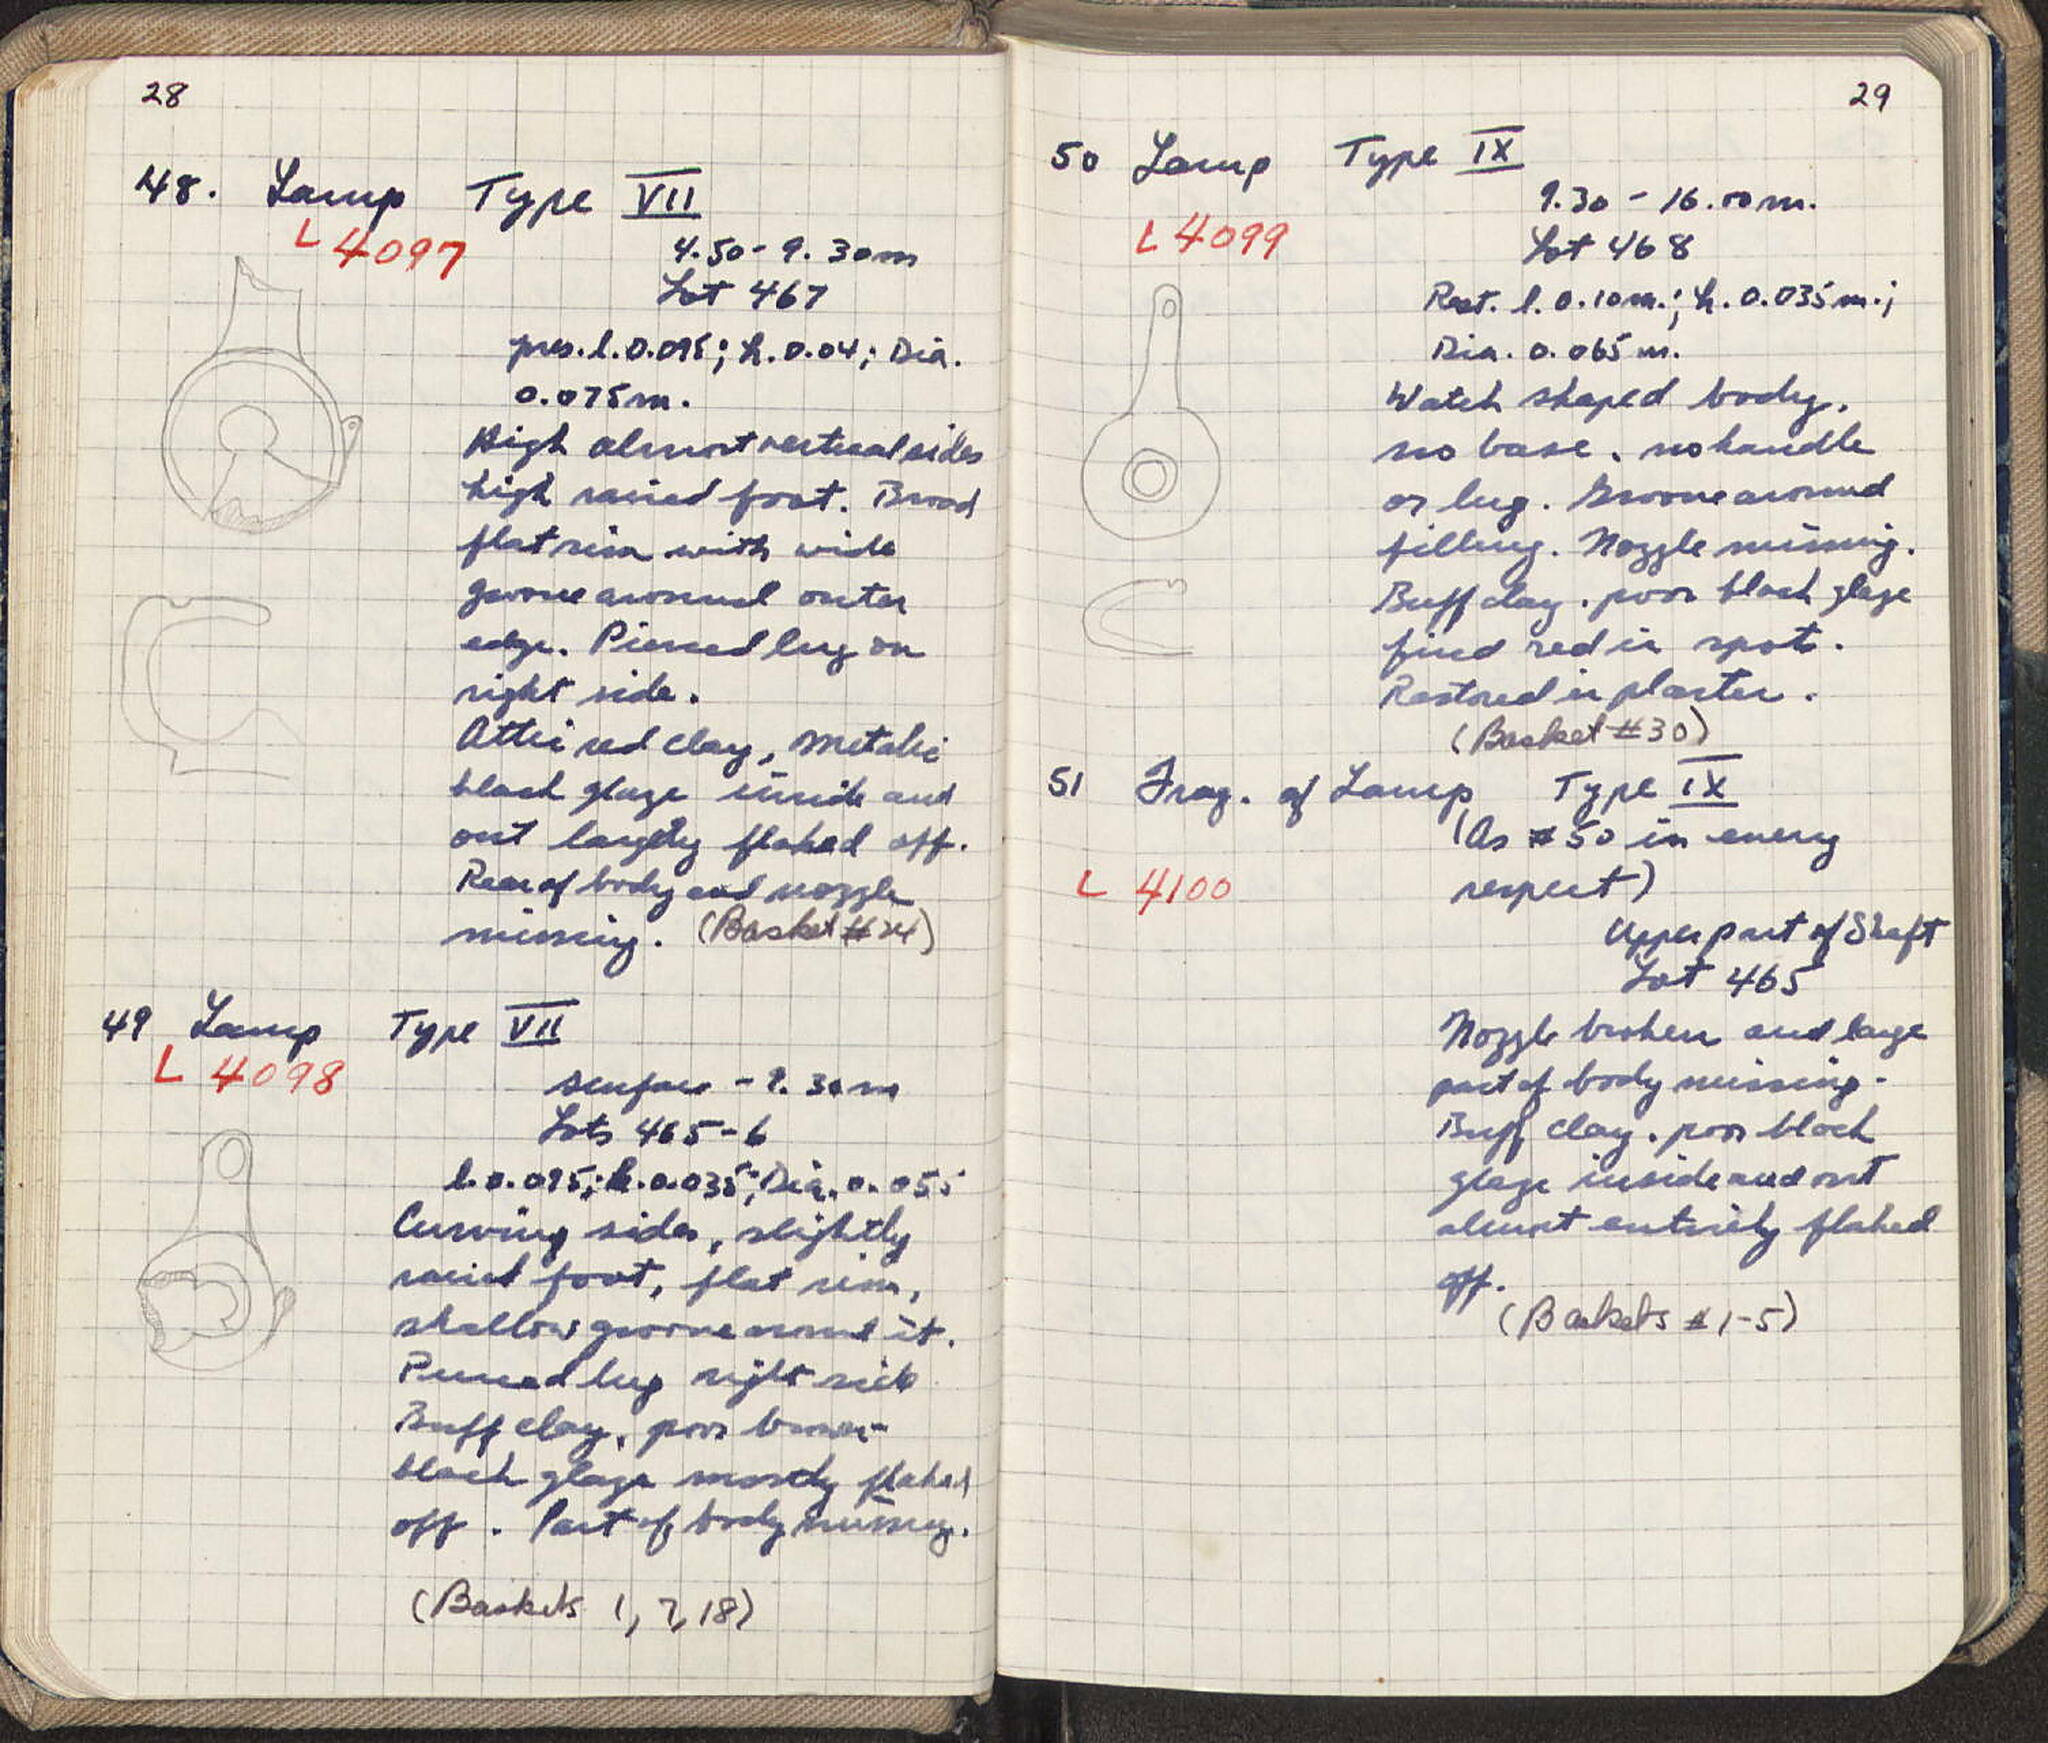 28
48. Lamp Type VII
L 4097
4.50 - 9.30m
Lot 467
pres. l. 0.095; h. 0.04; Dia.
0.075m.
High almost vertical sides
high raised foot. Broad
flat rim with wide
groove around outer
edge. Pierced lug on
right side.
Attic red clay, metalic
black glaze inside and
out largely flaked off.
Rear of body and nozzle
missing. (Basket #24)
49 Lamp Type VII
L 4098
surface - 9.30m
Lots 465-6
l. 0.095; h. 0.035; Dia. 0.055
Curving sides, slightly
raised foot, flat rim,
shallow groove around it.
Pierced lug right side
Buff clay, poor brown-
black glaze mostly flaked
off. Part of body missing.
(Baskets 1, 7, 18)
29
50 Lamp Type IX
9.30 - 16.00m.
L 4099
Lot 468
Rest. l. 0.10m.; h. 0.035m.;
Dia. 0.065m.
Watch shaped body.
no base. no handle
or lug. Groove around
filling. Nozzle missing.
Buff clay. poor black glaze
fired red in spots.
Restored in plaster.
(Basket #30)
51 Frag. of Lamp Type IX
(As #50 in every
L 4100
respect)
Upper part of Shaft
Lot 465
Nozzle broken and large
part of body missing.
Buff clay. poor black
glaze inside and out
almost entirely flaked
off.
(Baskets #1-5)